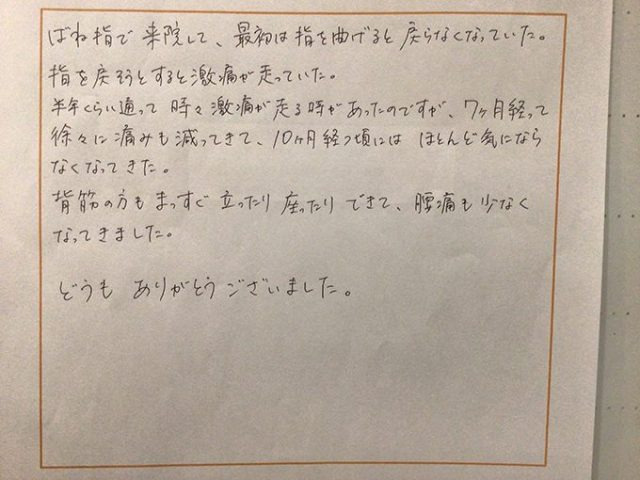 ばね指で来院して、最初は指を曲げると戻らなくなっていた。
指を戻そうとすると激痛が走っていた。
半年くらい通って時々激痛が走る時があったのですが、7ヶ月経って
徐々に痛みも減ってきて、10ヶ月経つ頃にはほとんど気になら
なくなってきた。
背筋の方もまっすぐ立ったり座ったりできて、腰痛も少なく
なってきました。
どうもありがとうございました。